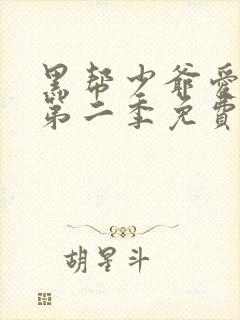 黑帮少爷爱
第二季免費
胡星斗